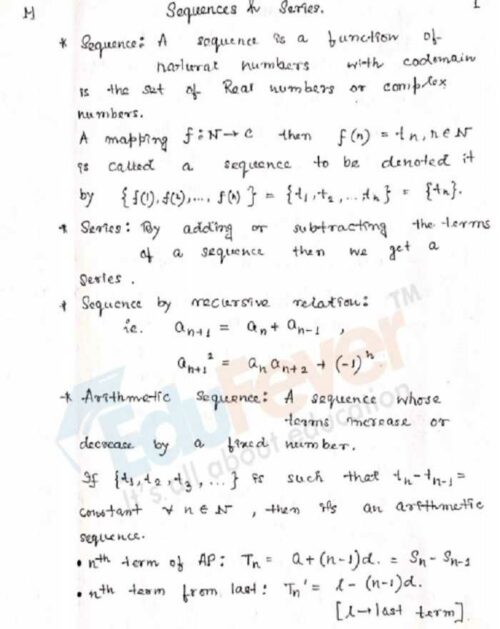 M Sequences & Series. 1
* Sequence: A sequence is a function of
natural numbers with codomain
is the set of Real numbers or complex
numbers.
A mapping f: N → C then f(n) = tn, n ∈ N
is called a sequence to be denoted it
by {f(1), f(2), ..., f(n)} = {t1, t2, ... tn} = {tn}.
* Series: By adding or subtracting the terms
of a sequence then we get a
series.
* Sequence by recursive relation:
ie. an+1 = an + an-1 ,
an+1² = an an+2 + (-1)^n.
* Arithmetic Sequence: A sequence whose
terms increase or
decrease by a fixed number.
If {t1, t2, t3, ...} is such that tn - tn-1 =
constant ∀ n ∈ N , then its an arithmetic
sequence.
• nth term of AP: Tn = a + (n-1)d. = Sn - Sn-1
• nth term from last: Tn' = l - (n-1)d.
[l → last term]
EduFever™
It's all about education